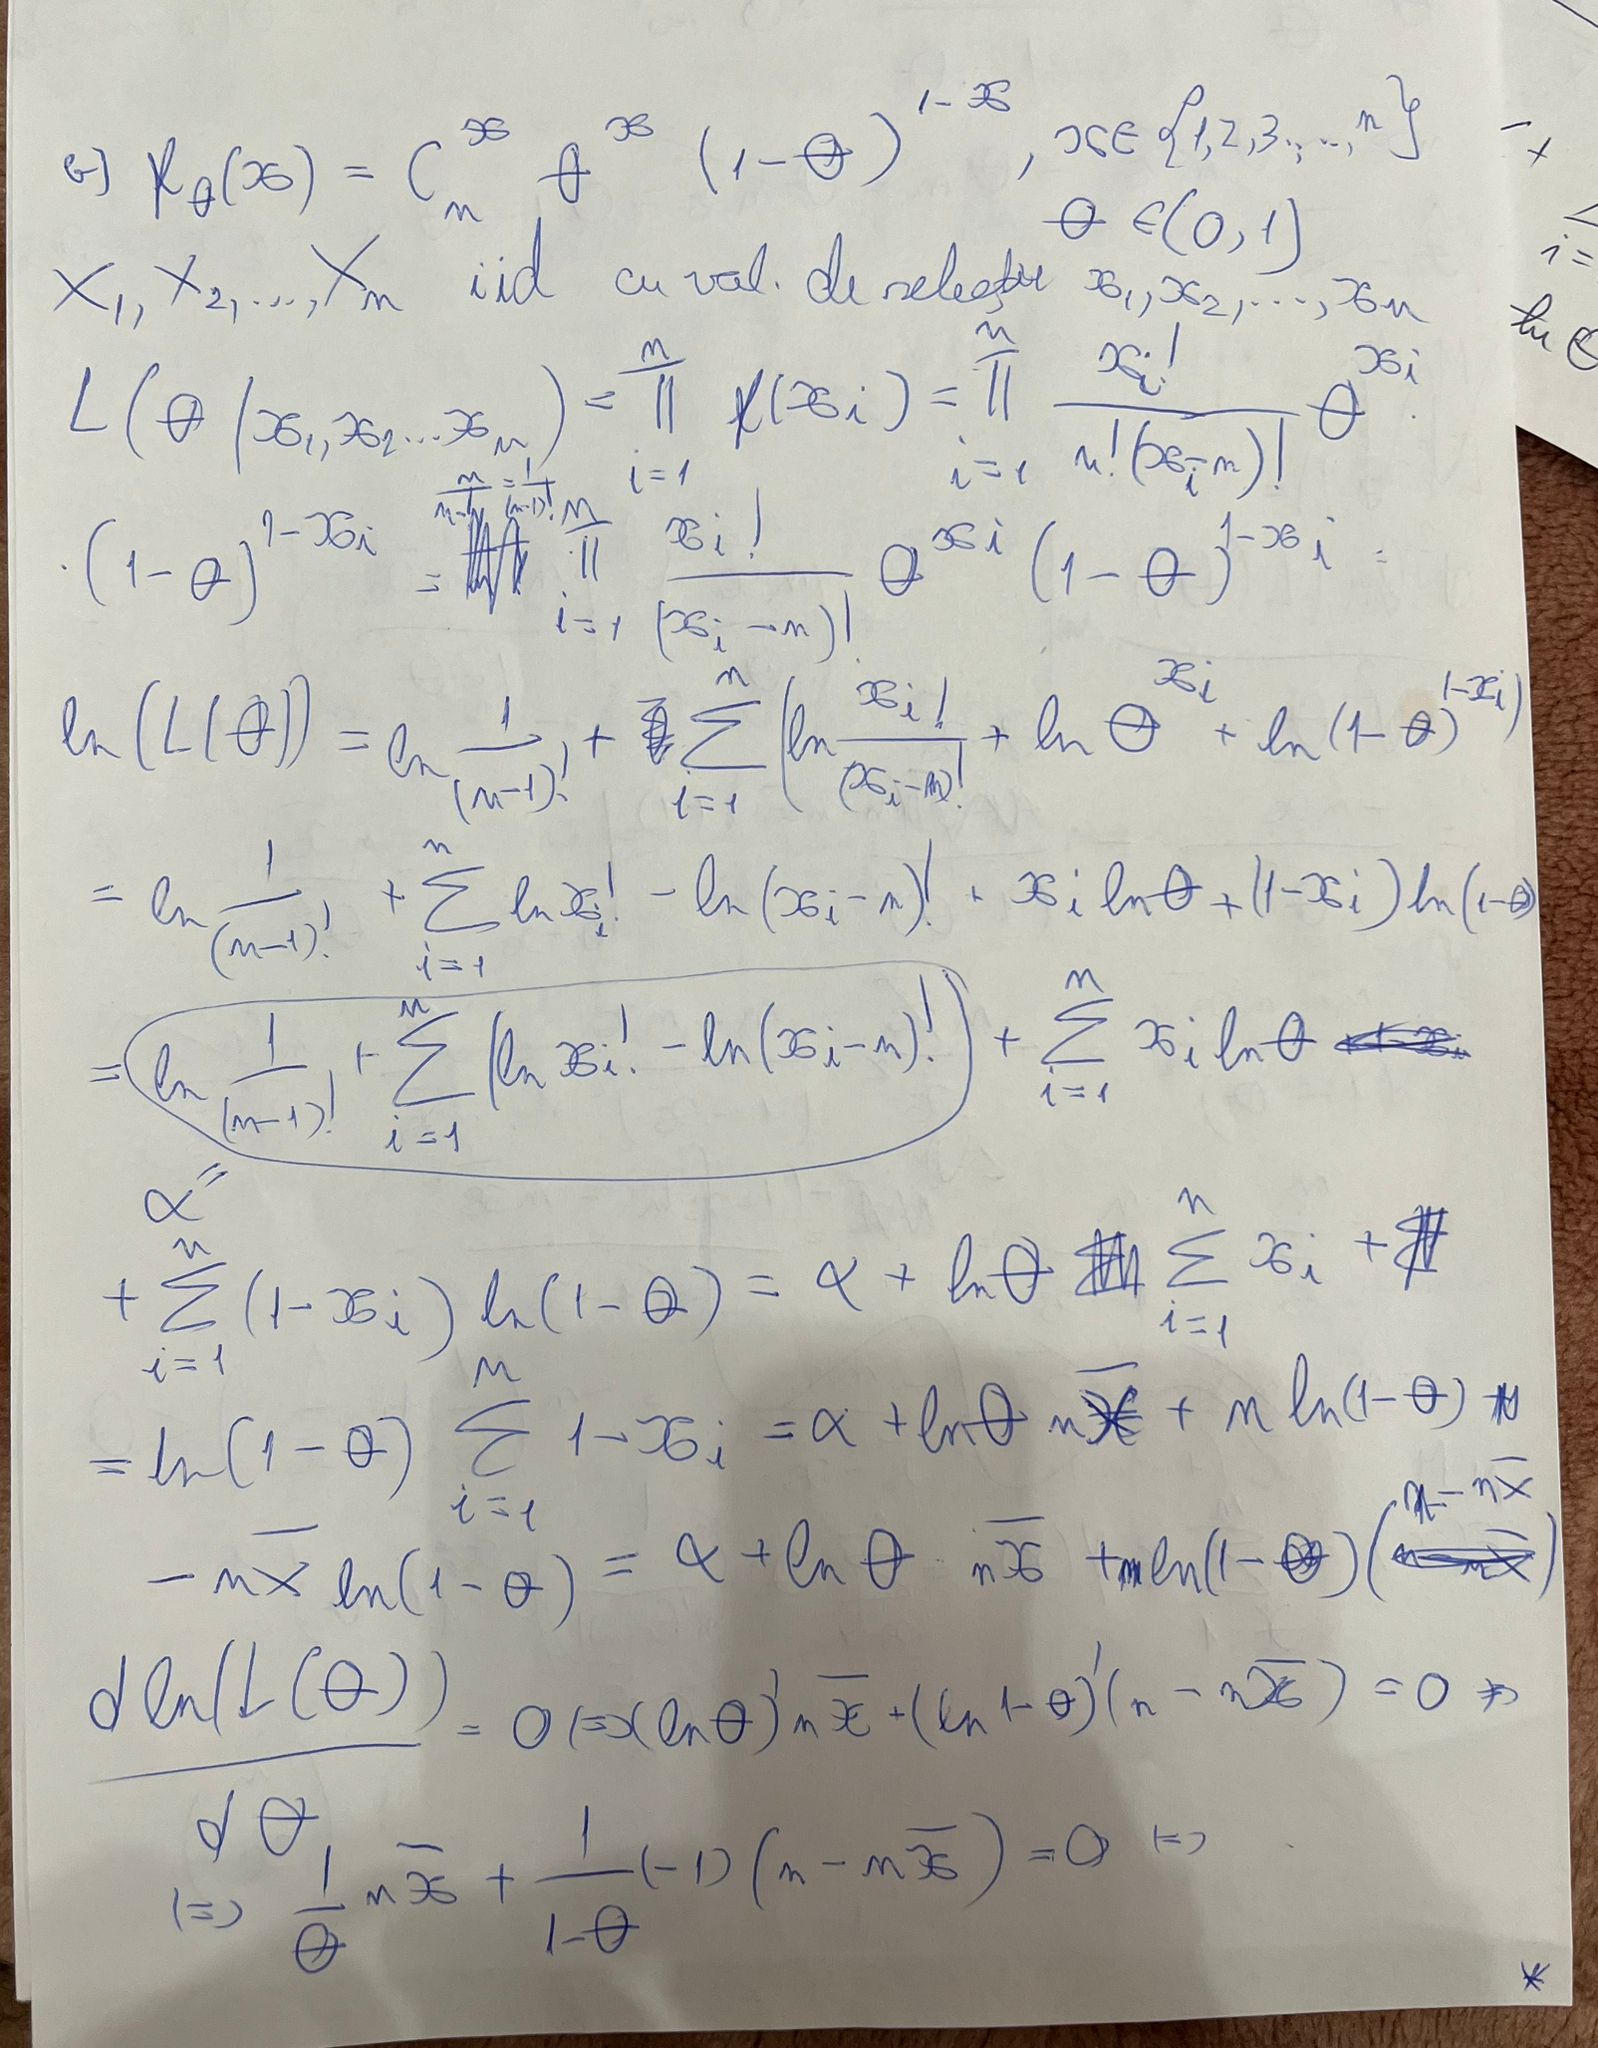 b) p_θ(x) = C_n^x θ^x (1-θ)^{1-x}, x∈{1,2,3,...,n}
θ ∈(0,1)
X_1, X_2,..., X_n iid cu val. de selecție x_1, x_2,...., x_n
L(θ/x_1, x_2...x_n) = ∏_{i=1}^{n} p(x_i) = ∏_{i=1}^{n} \frac{x_i!}{n!(x_i-n)!} θ^{x_i} ·
·(1-θ)^{1-x_i} = \frac{n}{n!} = \frac{1}{(n-1)!} ∏_{i=1}^{n} \frac{x_i!}{(x_i-n)!} θ^{x_i} (1-θ)^{1-x_i} =
ln(L(θ)) = ln \frac{1}{(n-1)!} + ∑_{i=1}^{n} (ln \frac{x_i!}{(x_i-n)!} + ln θ^{x_i} + ln(1-θ)^{1-x_i})
= ln \frac{1}{(n-1)!} + ∑_{i=1}^{n} ln x_i! - ln(x_i-n)! + x_i lnθ + (1-x_i) ln(1-θ)
= ln \frac{1}{(n-1)!} + ∑_{i=1}^{n} (ln x_i! - ln(x_i-n)!) + ∑_{i=1}^{n} x_i lnθ
α =
+ ∑_{i=1}^{n} (1-x_i) ln(1-θ) = α + lnθ ∑_{i=1}^{n} x_i +
= ln(1-θ) ∑_{i=1}^{n} 1-x_i = α + lnθ n\bar{x} + n ln(1-θ)
- n\bar{x} ln(1-θ) = α + ln θ n\bar{x} + ln(1-θ)(n - n\bar{x})
\frac{d ln(L(θ))}{dθ} = 0 (=> (lnθ)' n\bar{x} + (ln 1-θ)'(n - n\bar{x}) = 0 =>
(=> \frac{1}{θ} n\bar{x} + \frac{1}{1-θ} (-1)(n - n\bar{x}) = 0 (=>
*
- +
i=
ln θ